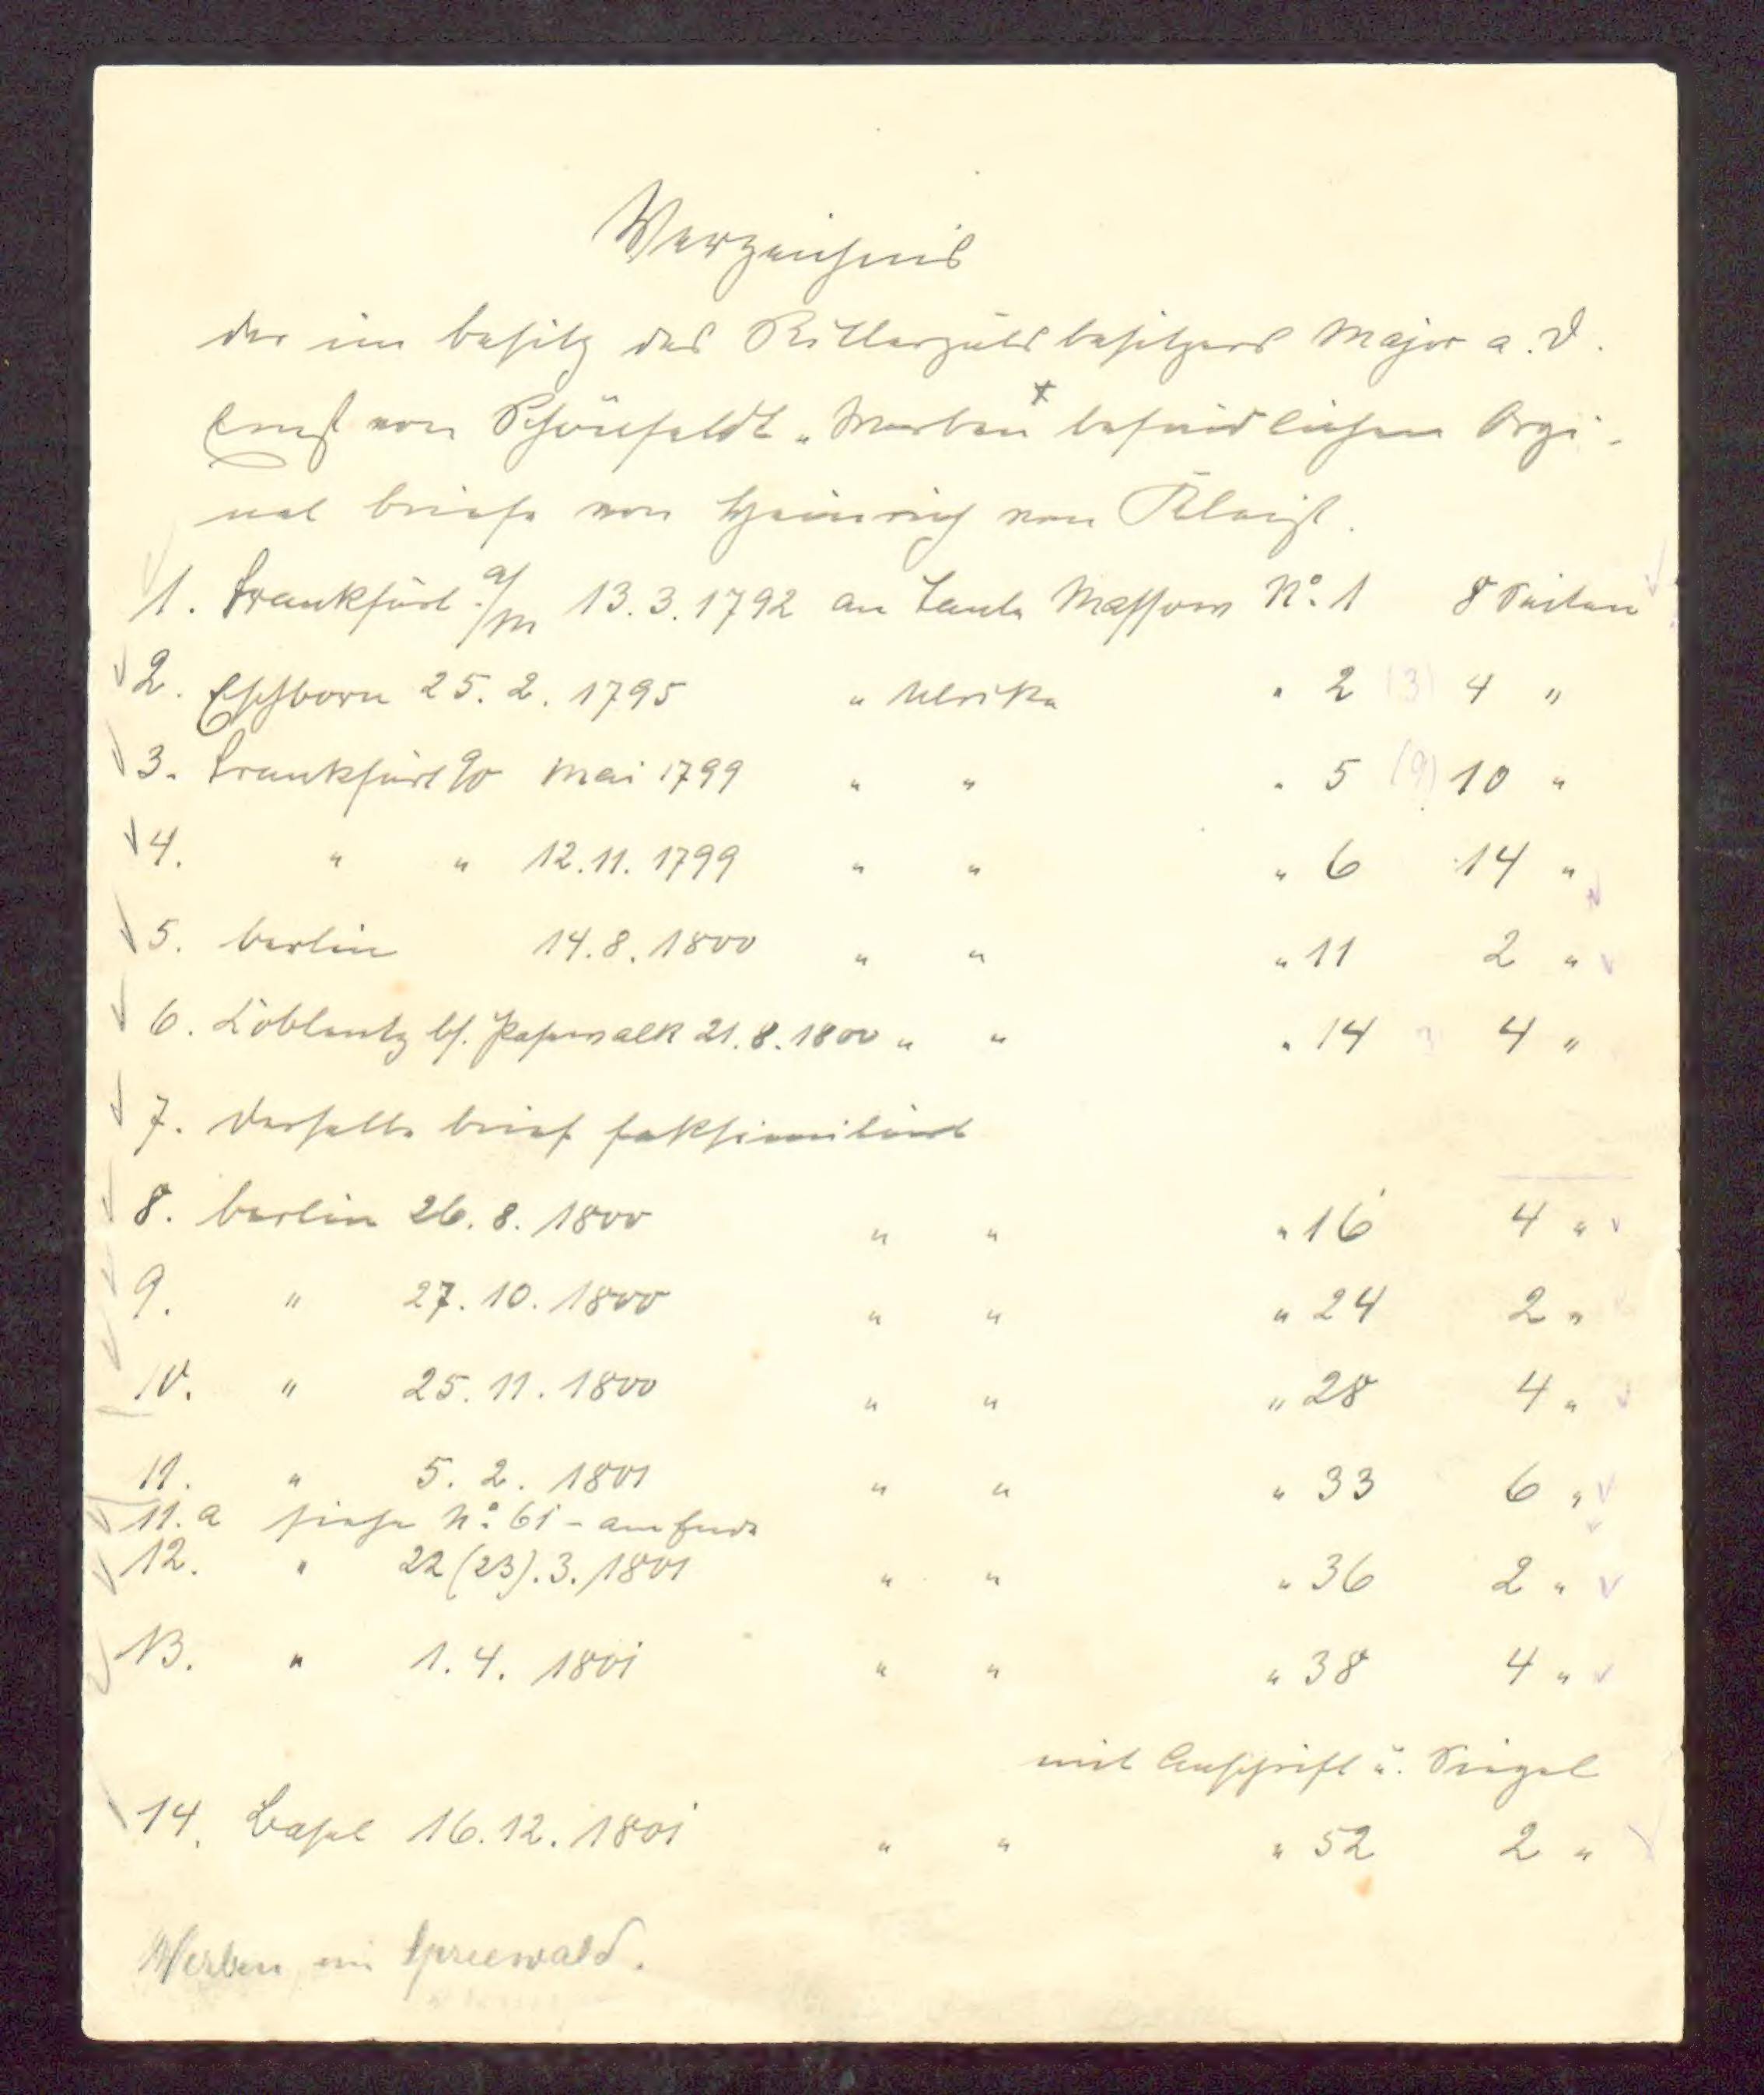 Verzeichnis
der im Besitz des Rittergutsbesitzers Major a. D.
Ernst von Schönfeldt „ Werben x befindlichen Orgi-
nal briefe von Heinrich von Kleist.
1. Frankfurt a/M 13.3.1792 an Tante Massow No. 1 8 Seiten
2. Eschborn 25. 2. 1795 " Ulrike " 2 (3) 4 "
3. Frankfurt a/O Mai 1799 " " " 5 (9) 10 "
4. " " 12.11.1799 " " " 6 14 "
5. Berlin 14.8.1800 " " " 11 2 "
6. Coblentz bf. Pasewalk 21.8.1800 " " " 14 3 4 "
7. Derselbe Brief faksimiliert
8. Berlin 26.8.1800 " " " 16 4 "
9. " 27.10.1800 " " " 24 2 "
10. " 25.11.1800 " " " 28 4 "
11. " 5. 2. 1801 " " " 33 6 "
11.a siehe No. 61 - am Ende
12. " 22 (23).3.1801 " " " 36 2 "
13. " 1.4. 1801 " " " 38 4 "
mit Anschrift u. Siegel
14. Basel 16.12.1801 " " " 52 2 "
Werben im Spreewald.